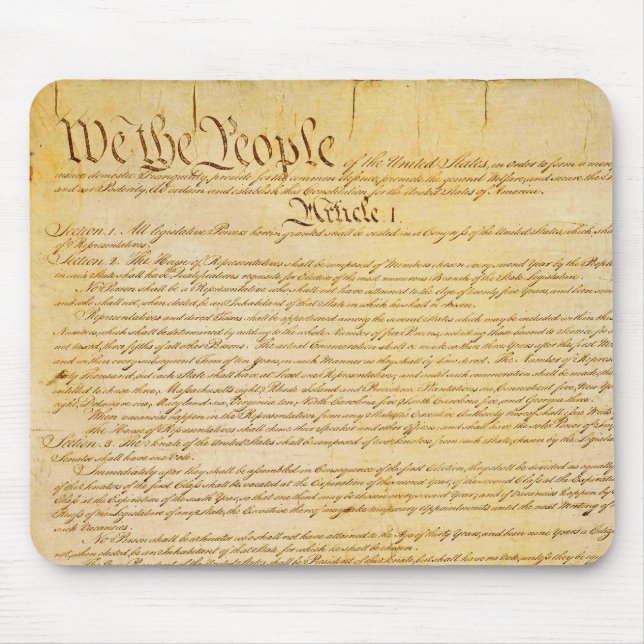 We the People of the United States, in order to form a more
insure domestic Tranquility, provide for the common defence, promote the general Welfare, and secure the
and our Posterity, do ordain and establish this Constitution for the United States of America.
Article I.
Section 1. All legislative Powers herein granted shall be vested in a Congress of the United States, which sha
of Representatives.
Section 2. The House of Representatives shall be composed of Members chosen every second Year by the People
in each State shall have Qualifications requisite for Electors of the most numerous Branch of the State Legislature.
No Person shall be a Representative who shall not have attained to the Age of twenty five Years, and been seven
and who shall not, when elected, be an Inhabitant of that State in which he shall be chosen.
Representatives and direct Taxes shall be apportioned among the several States which may be included within this
Numbers, which shall be determined by adding to the whole Number of free Persons, including those bound to Service for a
not taxed, three fifths of all other Persons. The actual Enumeration shall be made within three Years after the first Me
and within every subsequent Term of ten Years, in such Manner as they shall by Law direct. The Number of Represen
thirty Thousand, but each State shall have at Least one Representative; and until such enumeration shall be made, the
entitled to chuse three, Massachusetts eight, Rhode Island and Providence Plantations one, Connecticut five, New York
eight, Delaware one, Maryland six, Virginia ten, North Carolina five, South Carolina five, and Georgia three.
When vacancies happen in the Representation from any State, the Executive Authority thereof shall issue Writs
The House of Representatives shall chuse their Speaker and other Officers; and shall have the sole Power of Imp
Section 3. The Senate of the United States shall be composed of two Senators from each State, chosen by the Legislat
Senator shall have one Vote.
Immediately after they shall be assembled in Consequence of the first Election, they shall be divided as equally
of the Senators of the first Class shall be vacated at the Expiration of the second Year, of the second Class at the Expiration
Class at the Expiration of the sixth Year, so that one third may be chosen every second Year; and if Vacancies happen by
Recess of the Legislature of any State, the Executive thereof may make temporary Appointments until the next Meeting of
such Vacancies.
No Person shall be a Senator who shall not have attained to the Age of thirty Years, and been nine Years a Citizen
not, when elected, be an Inhabitant of that State for which he shall be chosen.
The Vice President of the United States shall be President of the Senate, but shall have no Vote, unless they be